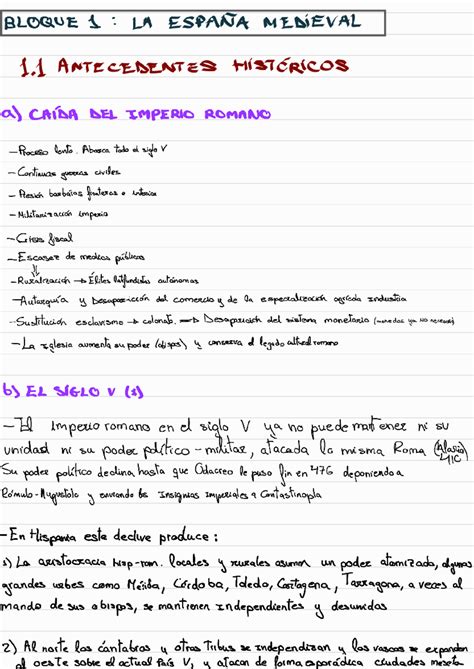 BLOQUE 1 : LA ESPAÑA MEDIEVAL
1.1 ANTECEDENTES HISTÓRICOS
a) CAÍDA DEL IMPERIO ROMANO
- Proceso lento. Abarca todo el siglo V
- Continuas guerras civiles
- Presión barbáios fronteras e interior
- Militarización imperio
- Crisis fiscal
- Escasez de medios públicos
- Ruralización → Élites latifundistas autónomas
- Autarquía y Desaparición del comercio y de la especialización agrícola industria
- Sustitución esclavismo → colonato. → Desaparición del sistema monetario (monedas ya NO necesario)
- La iglesia aumenta su poder (obispos) y conserva el legado cultural romano
b) EL SIGLO V (1)
- El Imperio romano en el siglo V ya no puede mantener ni su
unidad ni su poder político - militar, atacada la misma Roma (Alarico) 410
Su poder político declina hasta que Odacreo le puso fin en 476 deponiendo a
Rómulo-Augustolo y enviando las Insignias Imperiales a Constastinopla
- En Hispania este declive produce :
1) La aristocracia hisp-rom. locales y rurales asumen un poder atomizado, algunas
grandes urbes como Mérida, Córdoba, Toledo, Cartagena, Tarragona, a veces al
mando de sus obispos, se mantienen independientes y desunidas
2) Al norte los cántabros y otras Tribus se independizan y los vascos se expanden
al oeste sobre el actual País V, y atacan de forma esporádica ciudades